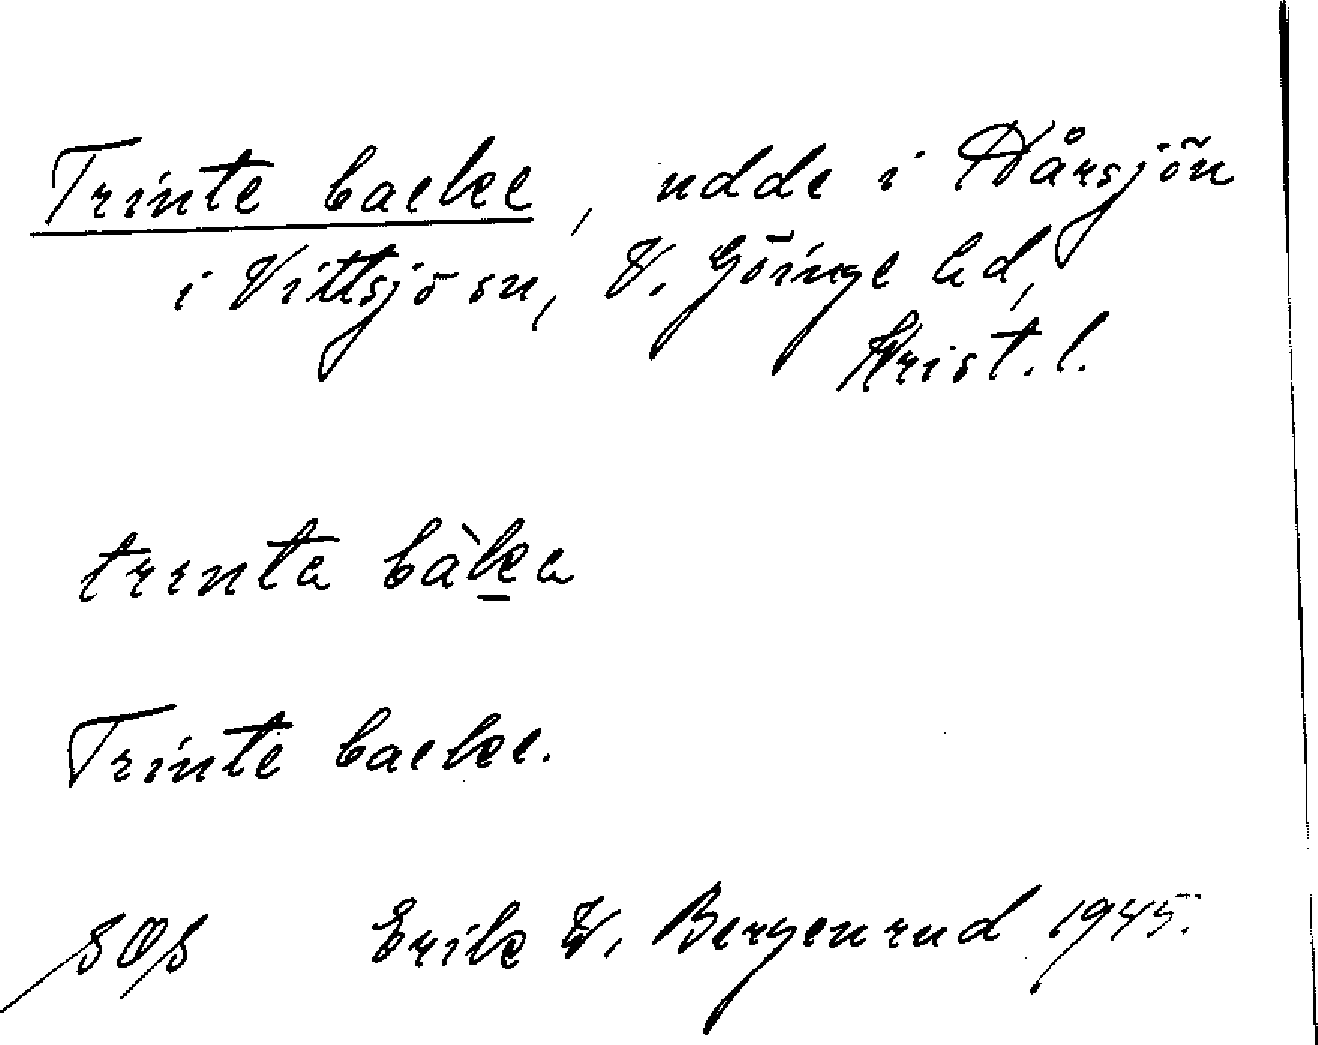 Trinte backe, udde i Hårsjön
i Vittsjö sn, V. Göinge hd,
Krist. l.
trinta bàka
Trinte backe.
SOS Erik W. Bergenrud 1945.